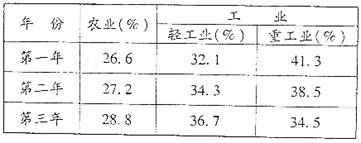 年 份 农业(%) 工 业
轻工业(%) 重工业(%)
第一年 26.6 32.1 41.3
第二年 27.2 34.3 38.5
第三年 28.8 36.7 34.5